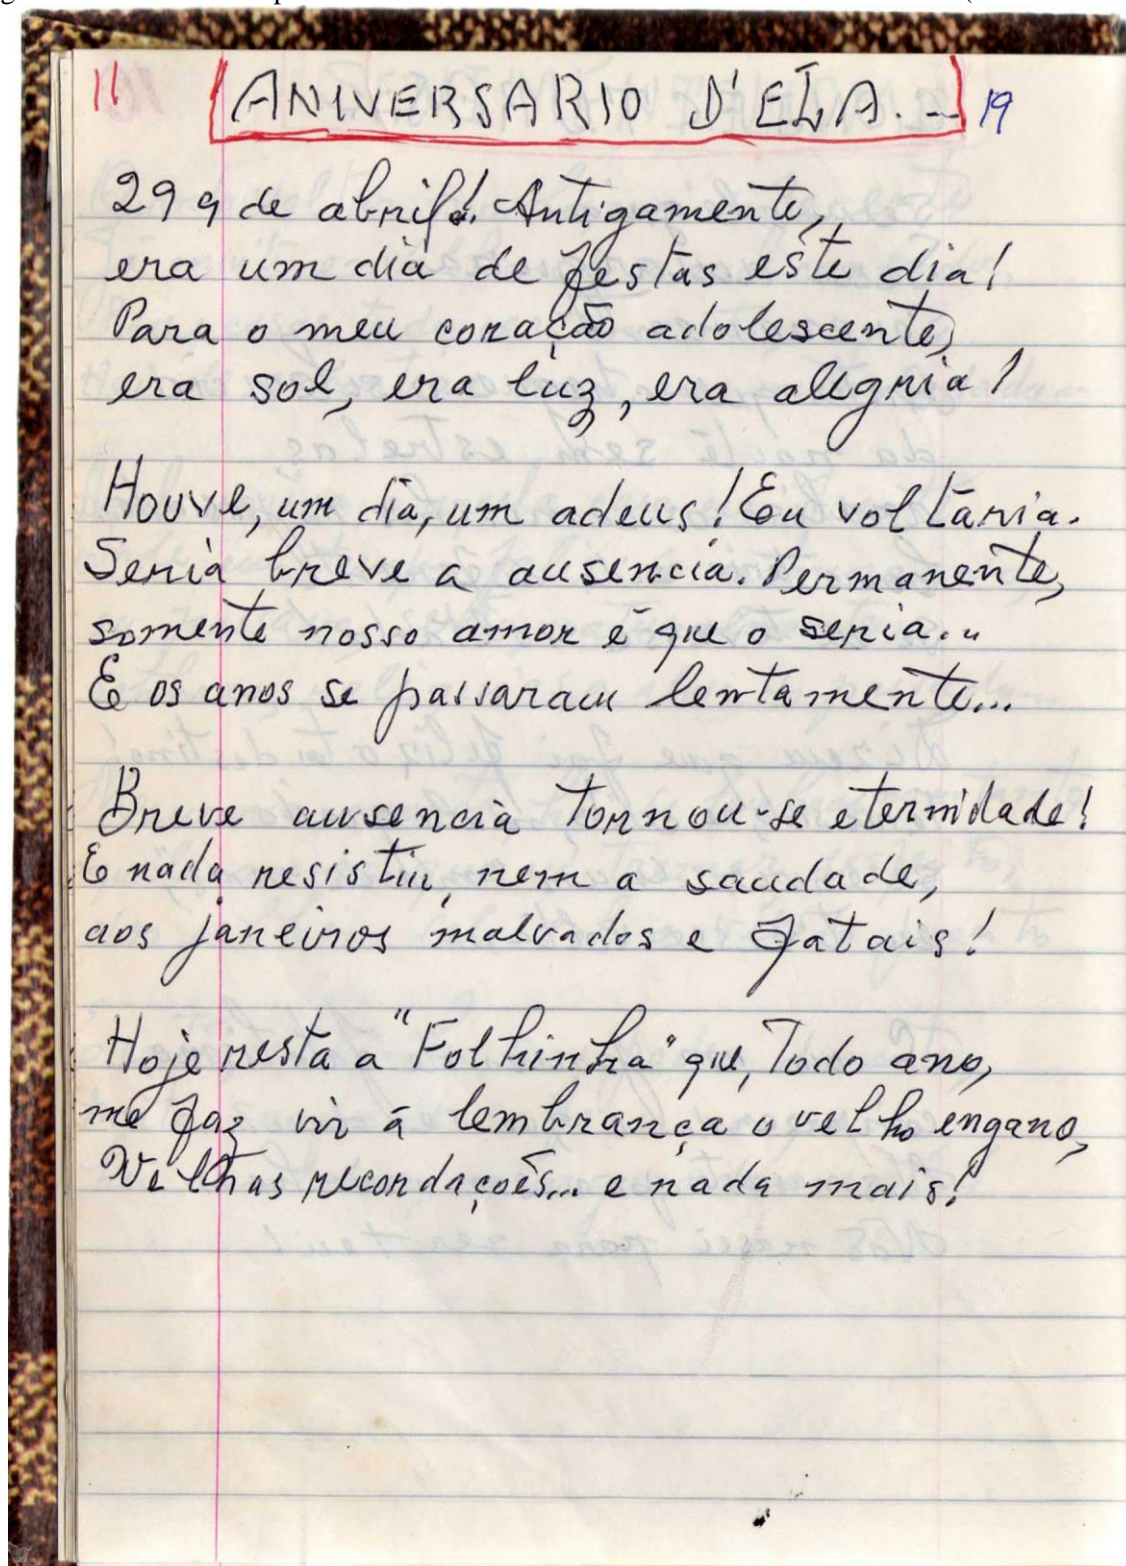 11 ANIVERSARIO D'ELA. - 19
29 de abril! Antigamente,
era um dia de festas este dia!
Para o meu coração adolescente,
era sol, era luz, era alegria!
Houve, um dia, um adeus! Eu voltaria.
Seria breve a ausencia. Permanente,
somente nosso amor é que o seria...
E os anos se passaram lentamente...
Breve ausencia tornou-se eternidade!
E nada resistiu, nem a saudade,
aos janeiros malvados e fatais!
Hoje resta a "Folhinha" que, todo ano,
me faz vir á lembrança o velho engano,
Velhas recordações... e nada mais!